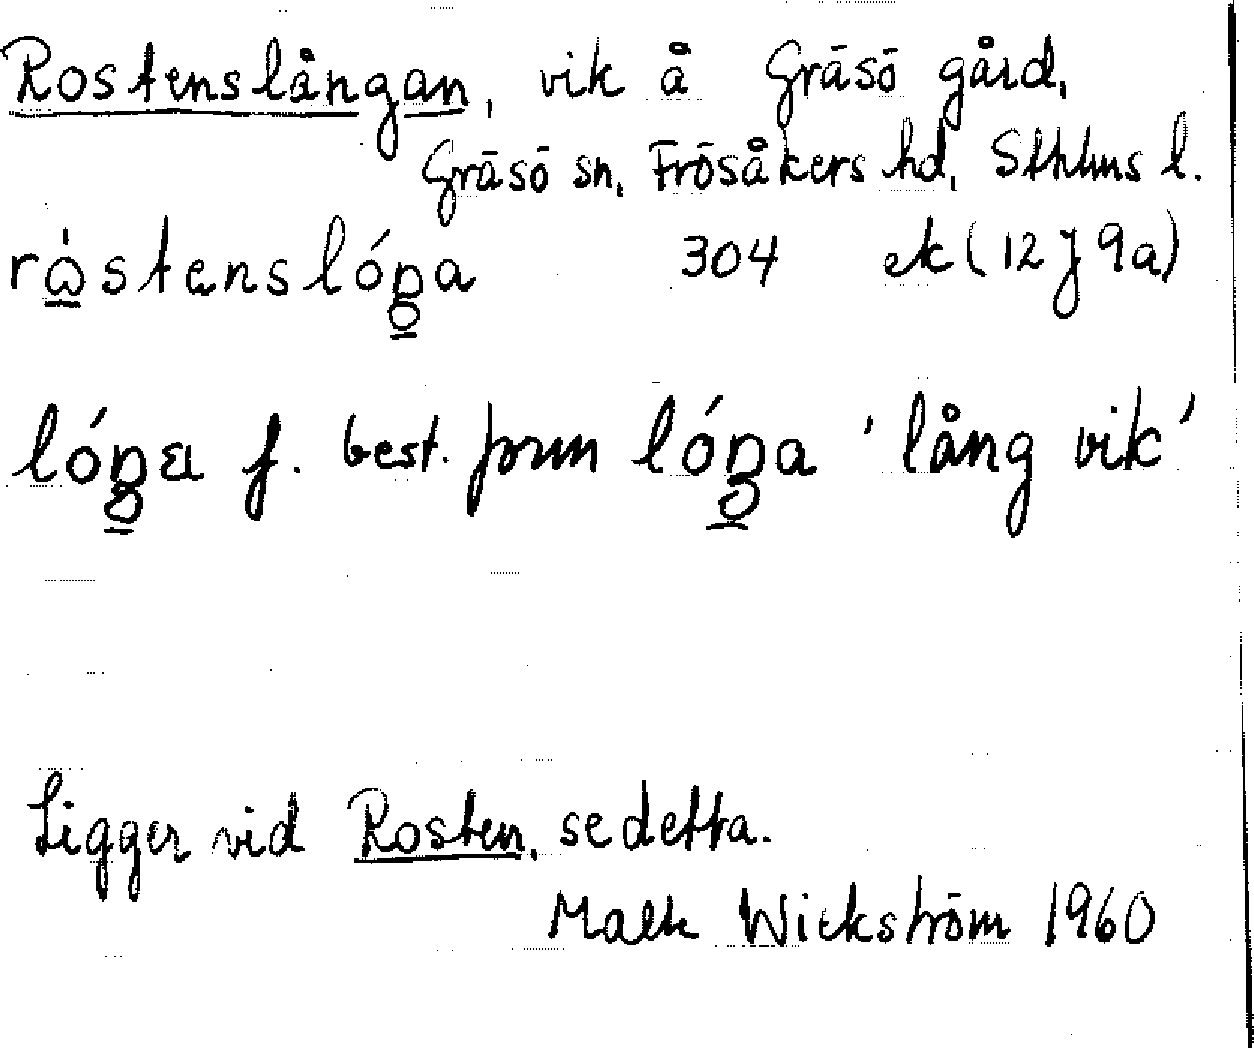 Rostenslångan, vik å Gräsö gård,
Gräsö sn, Frösåkers hd, Sthlms l.
304 ek (12 J 9a)
f. best. form 'lång vik'
Ligger vid Rosten, se detta.
Wickström 1960